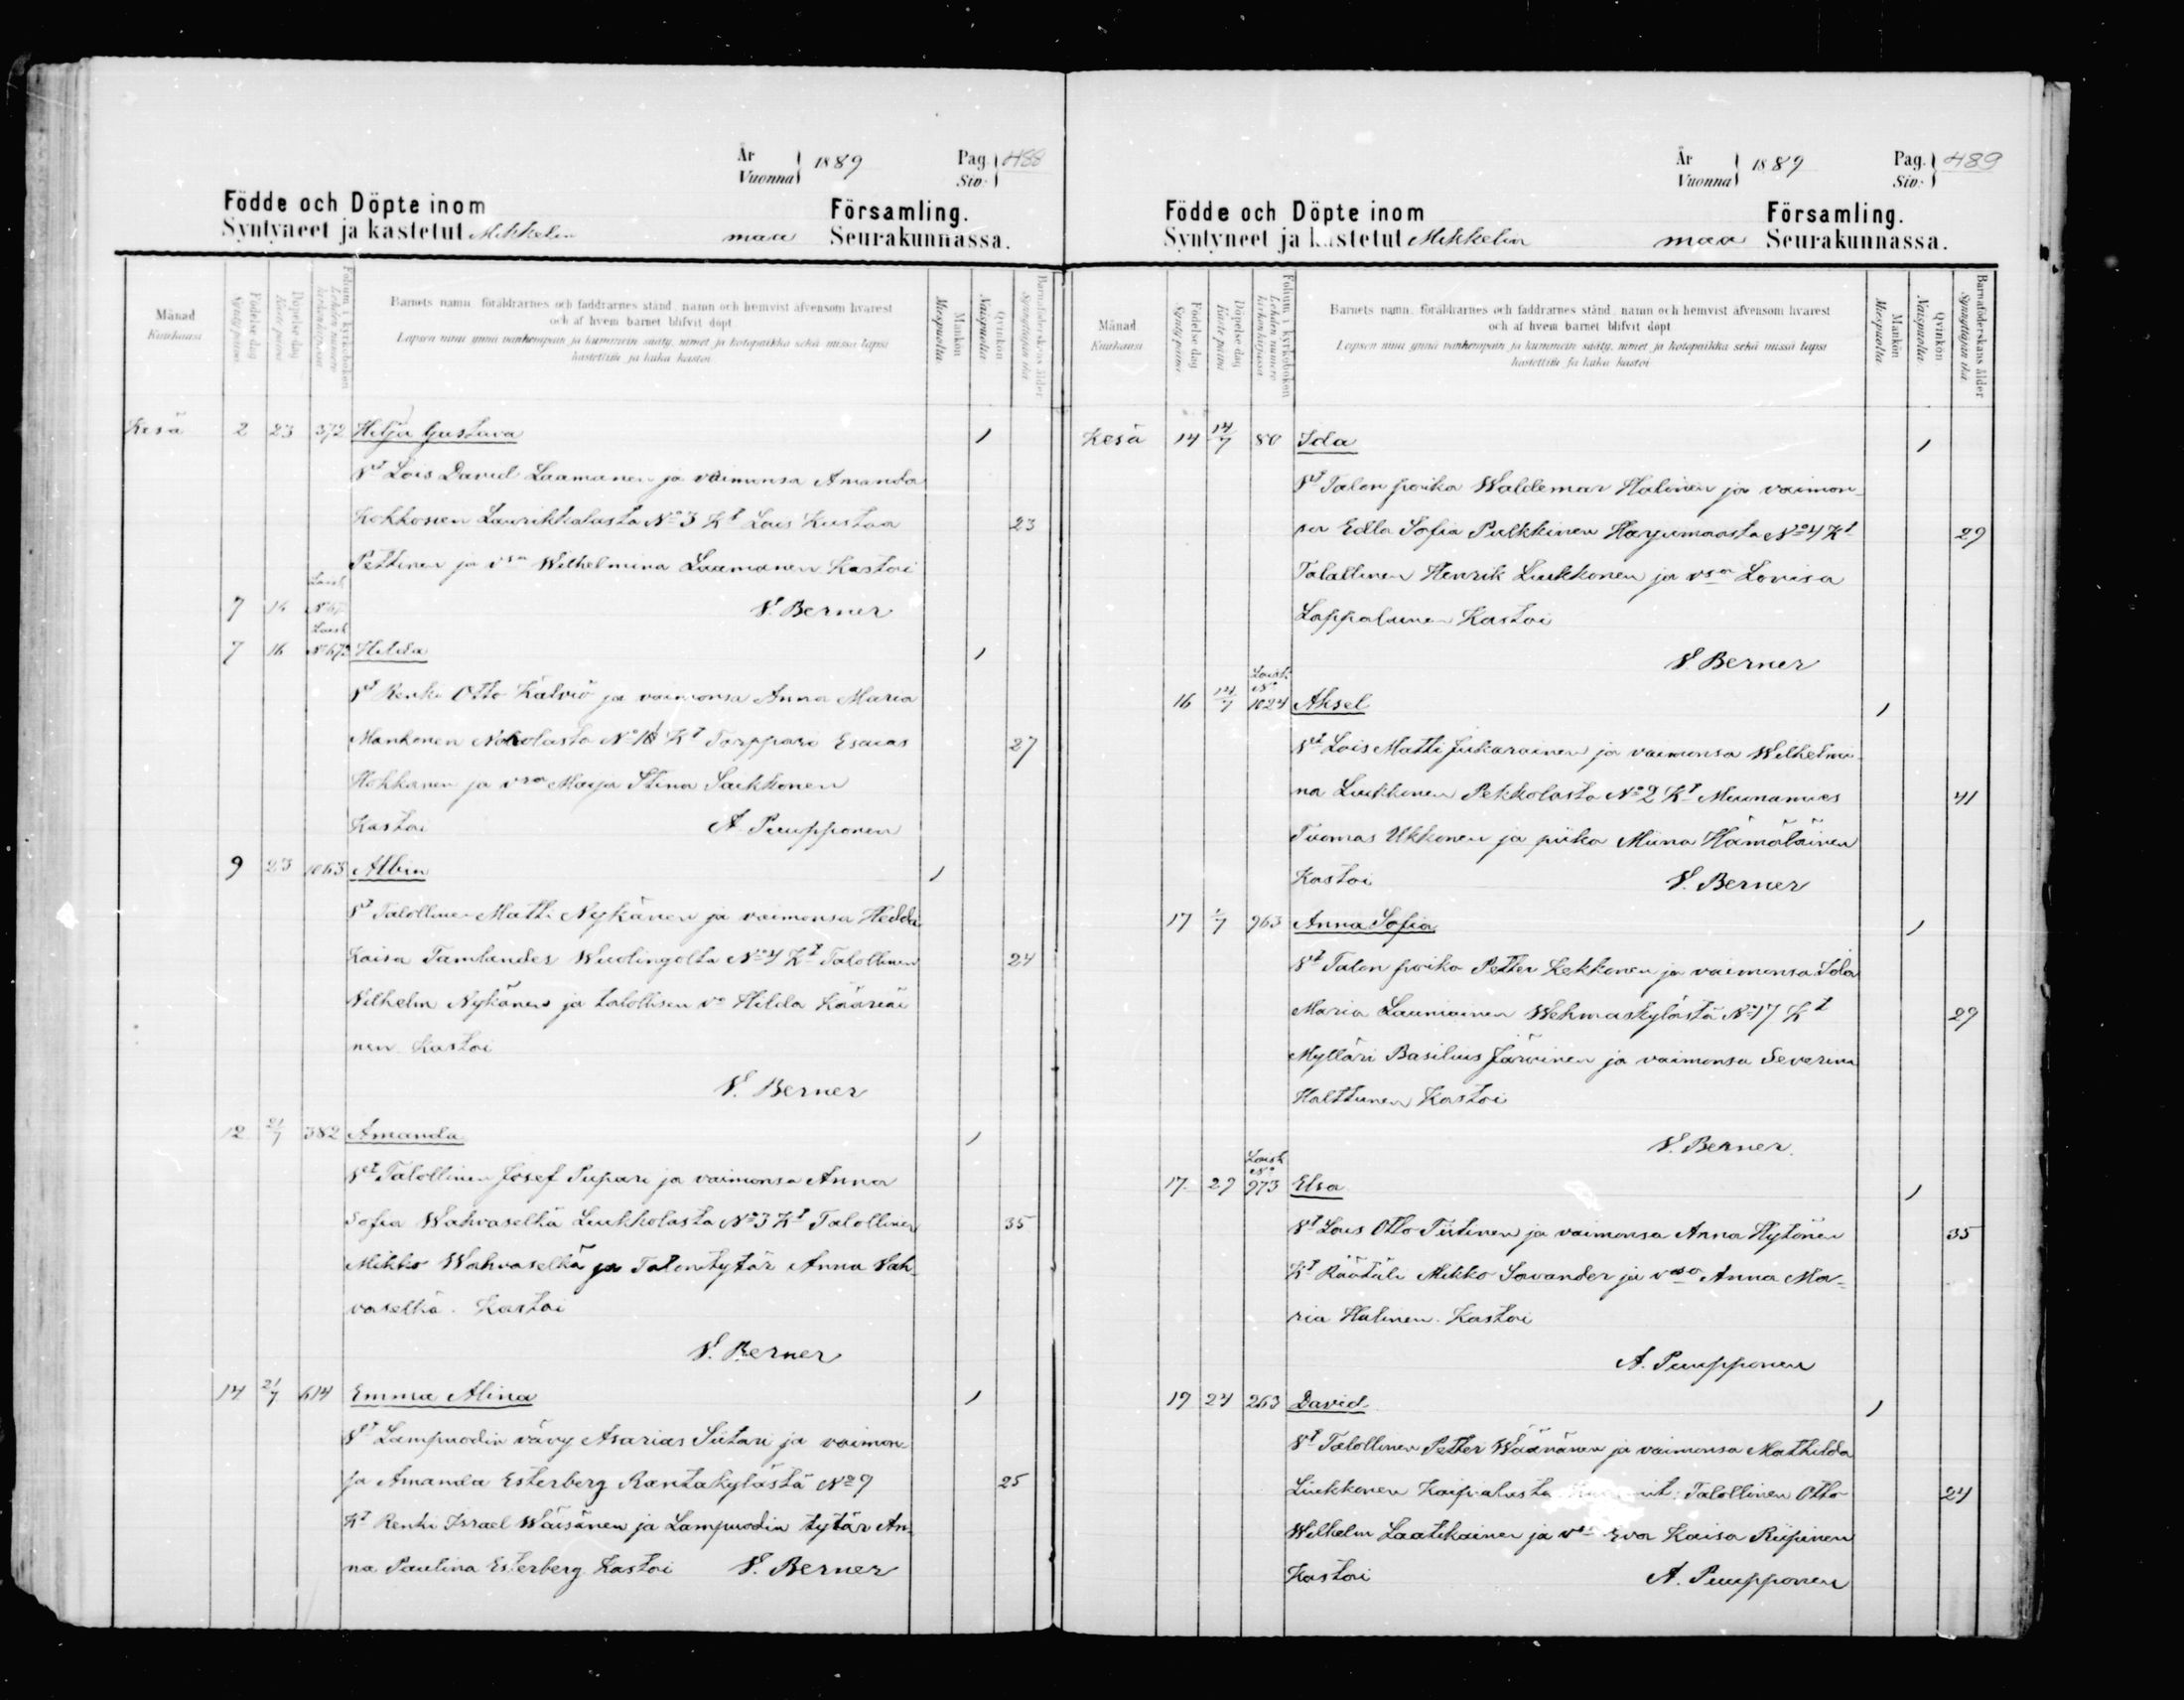 År
Vuonna 1889 Pag. Siv. 488
Födde och Döpte inom Församling.
Syntyneet ja kastetut Mikkelin maa Seurakunnassa.
Månad
Kuukausi
Födelse dag
Synty päivä
Döpelse dag
Kaste päivä
Folium i kyrkoboken
Lehden numero kirkonkirjassa
Barnets namn, föräldrarnes och faddrarnes stånd, namn och hemvist äfvensom hvarest
och af hvem barnet blifvit döpt
Lapsen nimi ynnä vanhempain ja kummein sääty, nimet ja kotopaikka sekä missä lapsi
kastettiin ja kuka kastoi
Mankön
Miespuolia
Qvinkön
Naispuolia
Barnaföderskans ålder
Synnyttäjän ikä
Kesä 2 23 372 Hilja Gustava 1
Vt Lois David Laamanen ja vaimonsa Amanda
Kokkonen Laurikkalasta No 3 Kt Lois Kustaa 23
Pettinen ja vsa Wilhelmina Laamanen Kastoi
7 16 V. Berner
Loisk
7 16 No 672 Hilda 1
Vt Renki Otto Kälviö ja vaimonsa Anna Maria
Manhonen No 18 Kt Torppari Esaias 27
Hokkanen ja vsa Maija Stina Saikkonen
Kastoi A. Puupponen
9 23 1063 Albin 1
Vt Talollinen Matti Nykänen ja vaimonsa Hedda
Kaisa Tamlander Wuolingolta No 4 Kt Talollinen 24
Vilhelm Nykänen ja talollisen vo Hilda Kääriäi
nen Kastoi
V. Berner
12 21/7 382 Amanda 1
Vt Talollinen Josef Piipari ja vaimonsa Anna
Sofia Wahvaselkä Liukkolasta No 3 Kt Talollinen 35
Mikko Wahvaselkä ja Talontytär Anna Vah-
vaselkä. Kastoi
V. Berner
14 21/7 614 Emma Alina 1
Vt Lampuodin vävy Asarias Siitari ja vaimon-
sa Amanda Esterberg Rantakylästä No 9 25
Kt Renki Israel Wäisänen ja Lampuodin tytär An-
na Paulina Esterberg. Kastoi V. Berner
År
Vuonna 1889 Pag. Siv. 489
Födde och Döpte inom Församling.
Syntyneet ja kastetut Mikkelin maa Seurakunnassa.
Månad
Kuukausi
Födelse dag
Synty päivä
Döpelse dag
Kaste päivä
Folium i kyrkoboken
Lehden numero kirkonkirjassa
Barnets namn, föräldrarnes och faddrarnes stånd, namn och hemvist äfvensom hvarest
och af hvem barnet blifvit döpt
Lapsen nimi ynnä vanhempain ja kummein sääty, nimet ja kotopaikka sekä missä lapsi
kastettiin ja kuka kastoi
Mankön
Miespuolia
Qvinkön
Naispuolia
Barnaföderskans ålder
Synnyttäjän ikä
Kesä 14 14/7 80 Ida 1
Vt Talon poika Waldemar Halinen ja vaimon-
sa Edla Sofia Pulkkinen Harjumaasta No 4 Kt 29
Talollinen Henrik Liukkonen ja vsa Lovisa
Lappalainen Kastoi
V. Berner
Loisk
No
16 14/7 1024 Aksel 1
Vt Lois Matti Jukarainen ja vaimonsa Wilhelmi-
na Liukkonen Pekkolasta No 2 Kt Muonamies 41
Tuomas Ukkonen ja piika Miina Hämäläinen
Kastoi V. Berner
17 1/7 963 Anna Sofia 1
Vt Talon poika Petter Kekkonen ja vaimonsa Ida
Maria Launiainen Wehmaskylästä No 17 Kt 29
Mylläri Basilius Järvinen ja vaimonsa Severina
Halttunen Kastoi
V. Berner.
Loisk
No
17 29 973 Elsa 1
Vt Lois Otto Tiitinen ja vaimonsa Anna Hytönen 35
Kt Räätäli Mikko Savander ja vsa Anna Ma-
ria Halinen. Kastoi
A. Puupponen
19 24 263 David 1
Vt Talollinen Petter Wäänänen ja vaimonsa Mathilda
Liukkonen Talollinen Otto 24
Wilhelm Laatikainen ja vsa Eva Kaisa Riipinen
Kastoi A. Puupponen